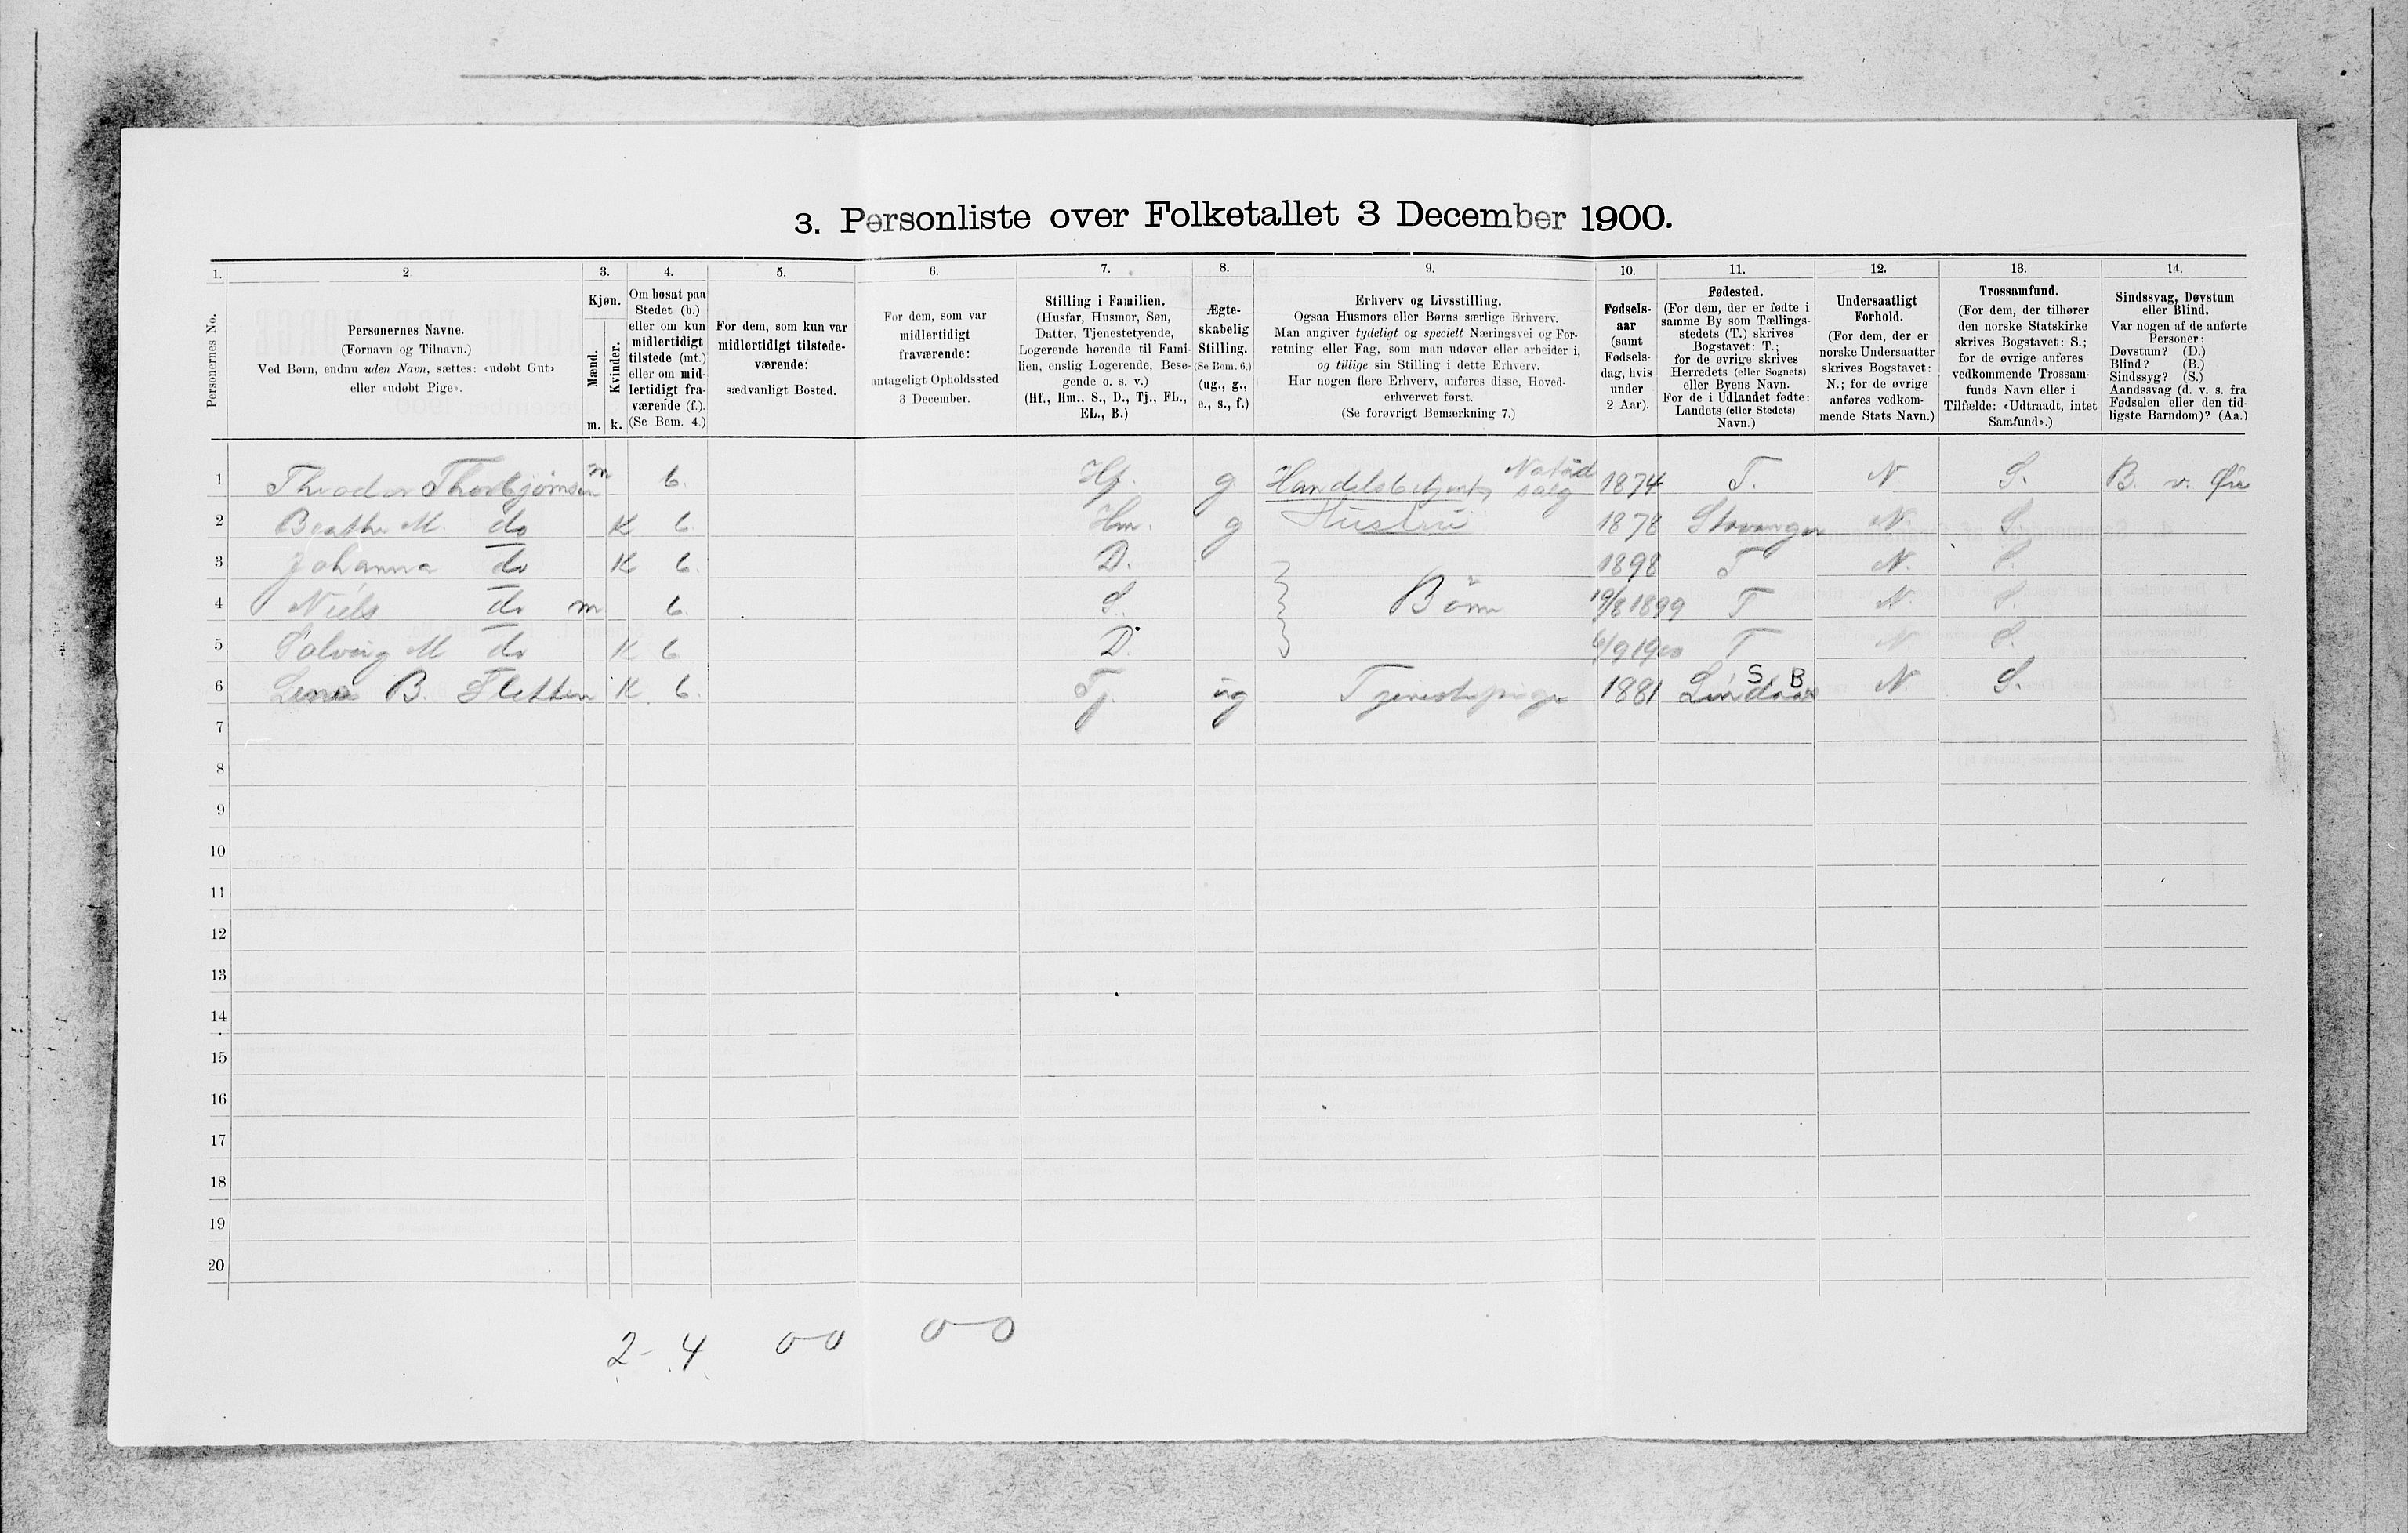 3. Personliste over Folketallet 3 December 1900.
1. 2 3. 4. 5. 6. 7. 8. 9. 10. 11. 12. 13. 14.
Personernes No.
Personernes Navne.
(Fornavn og Tilnavn.)
Ved Børn, endnu uden Navn, sættes: «udøbt Gut»
eller «udøbt Pige».
Kjøn.
Mænd.
Kvinder.
m. k.
Om bosat paa
Stedet (b.)
eller om kun
midlertidigt
tilstede (mt.)
eller om mid-
lertidigt fra-
værende (f.).
(Se Bem. 4.)
For dem, som kun var
midlertidigt tilstede-
værende:
sædvanligt Bosted.
For dem, som var
midlertidigt
fraværende:
antageligt Opholdssted
3 December.
Stilling i Familien.
(Husfar, Husmor, Søn,
Datter, Tjenestetyende,
Logerende hørende til Fami-
lien, enslig Logerende, Besø-
gende o. s. v.)
(Hf., Hm., S., D., Tj., FL.,
EL., B.)
Ægte-
skabelig
Stilling.
(Se Bem. 6.)
(ug., g.,
e., s., f.)
Erhverv og Livsstilling.
Ogsaa Husmors eller Børns særlige Erhverv.
Man angiver tydeligt og specielt Næringsvei og For-
retning eller Fag, som man udøver eller arbeider i,
og tillige sin Stilling i dette Erhverv.
Har nogen flere Erhverv, anføres disse, Hoved-
erhvervet først.
(Se forøvrigt Bemærkning 7.)
Fødsels-
aar
(samt
Fødsels-
dag, hvis
under
2 Aar).
Fødested.
(For dem, der er fødte i
samme By som Tællings-
stedets (T.) skrives
Bogstavet: T.;
for de øvrige skrives
Herredets (eller Sognets)
eller Byens Navn.
For de i Udlandet fødte:
Landets (eller Stedets)
Navn.)
Undersaatligt
Forhold.
(For dem, der er
norske Undersaatter
skrives Bogstavet:
N.; for de øvrige
anføres vedkom-
mende Stats Navn.)
Trossamfund.
(For dem, der tilhører
den norske Statskirke
skrives Bogstavet: S.;
for de øvrige anføres
vedkommende Trossam-
funds Navn eller i
Tilfælde: «Udtraadt, intet
Samfund».)
Sindssvag, Døvstum
eller Blind.
Var nogen af de anførte
Personer:
Døvstum? (D.)
Blind? (B.)
Sindssyg? (S.)
Aandssvag (d. v. s. fra
Fødselen eller den tid-
ligste Barndom)? (Aa.)
1 Theodor Thorbjørnsen m b. Hf. g. Handelsbetjent, salg 1874 T. N S. B. v. Øie
2 Beathe M. do K b. Hm. g Hustru 1878 Stavanger N. S.
3 Johanna do K b. D. 1898 T N. S.
4 Niels do m b. S. Børn 19/8 1899 T N. S.
5 Solveig M do K b D. 6/9 1900 T N. S.
6 Lena B. Fletten K b. Tj. ug Tjenestepige 1881 Lindaas S B N S.
7
8
9
10
11
12
13
14
15
16
17
18
19
20
2 - 4 0-0 0-0